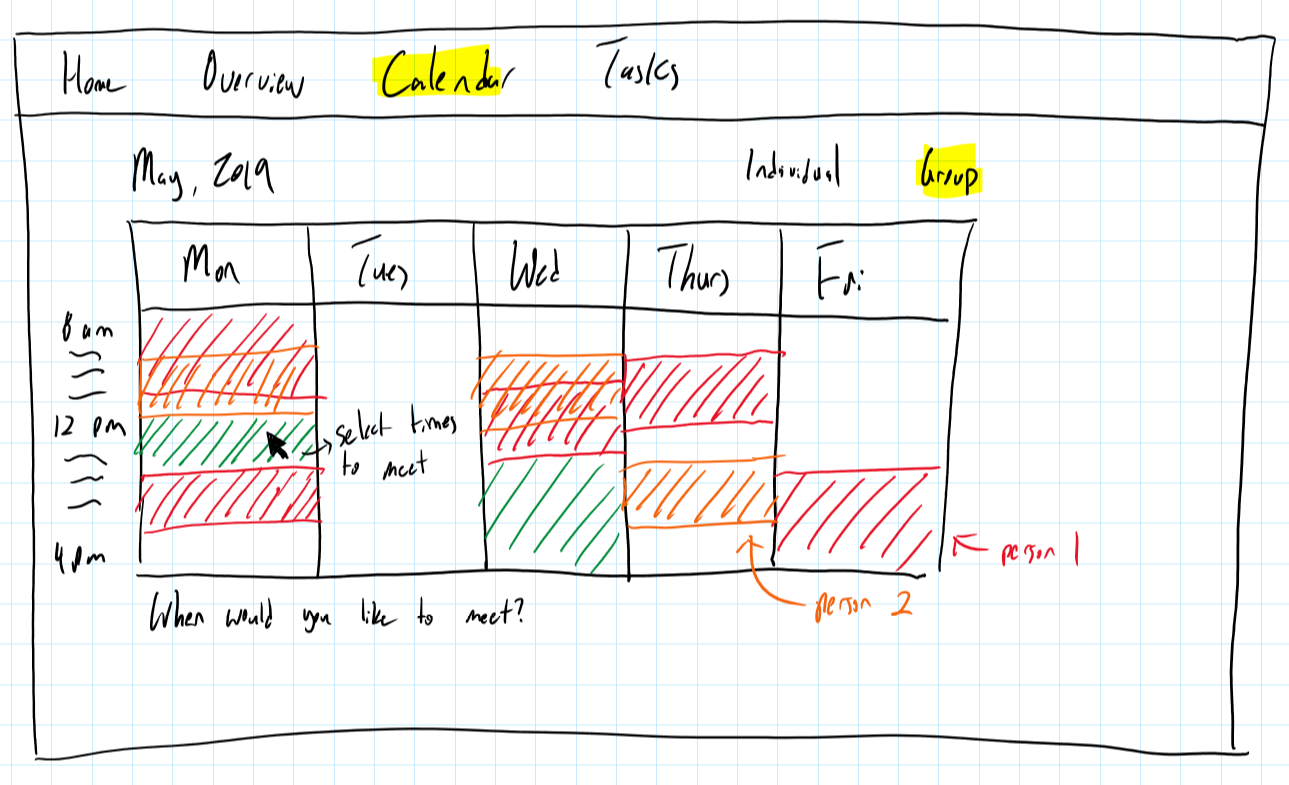 Home Overview Calendar Tasks
May, 2019 Individual Group
Mon Tues Wed Thurs Fri
8 am
12 pm
select times
to meet
4 pm
person 1
person 2
When would you like to meet?